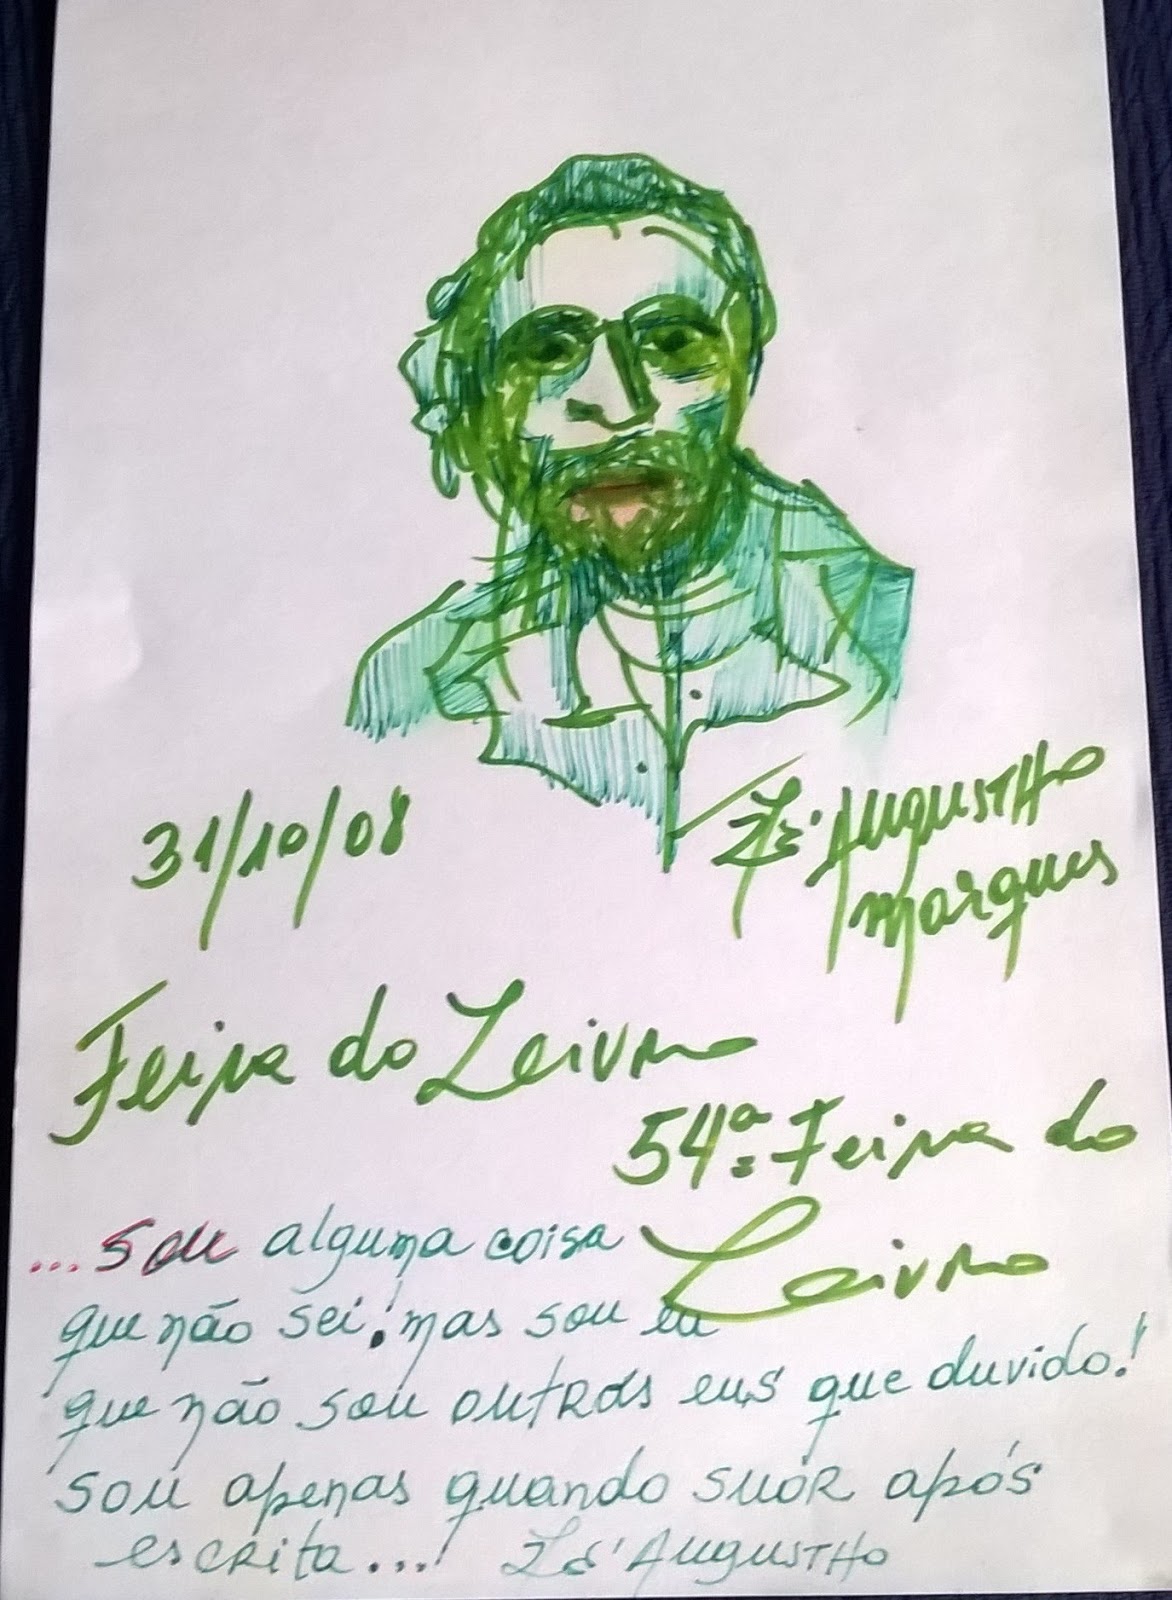 31/10/08
Zé'AUGUSTHO
marques
Feira do Leivro
54ª Feira do
Leivro
...sou alguma coisa
que não sei! mas sou eu
que não sou outros eus que duvido.!
sou apenas quando suór após
escrita...! Zé'AUGUSTHO